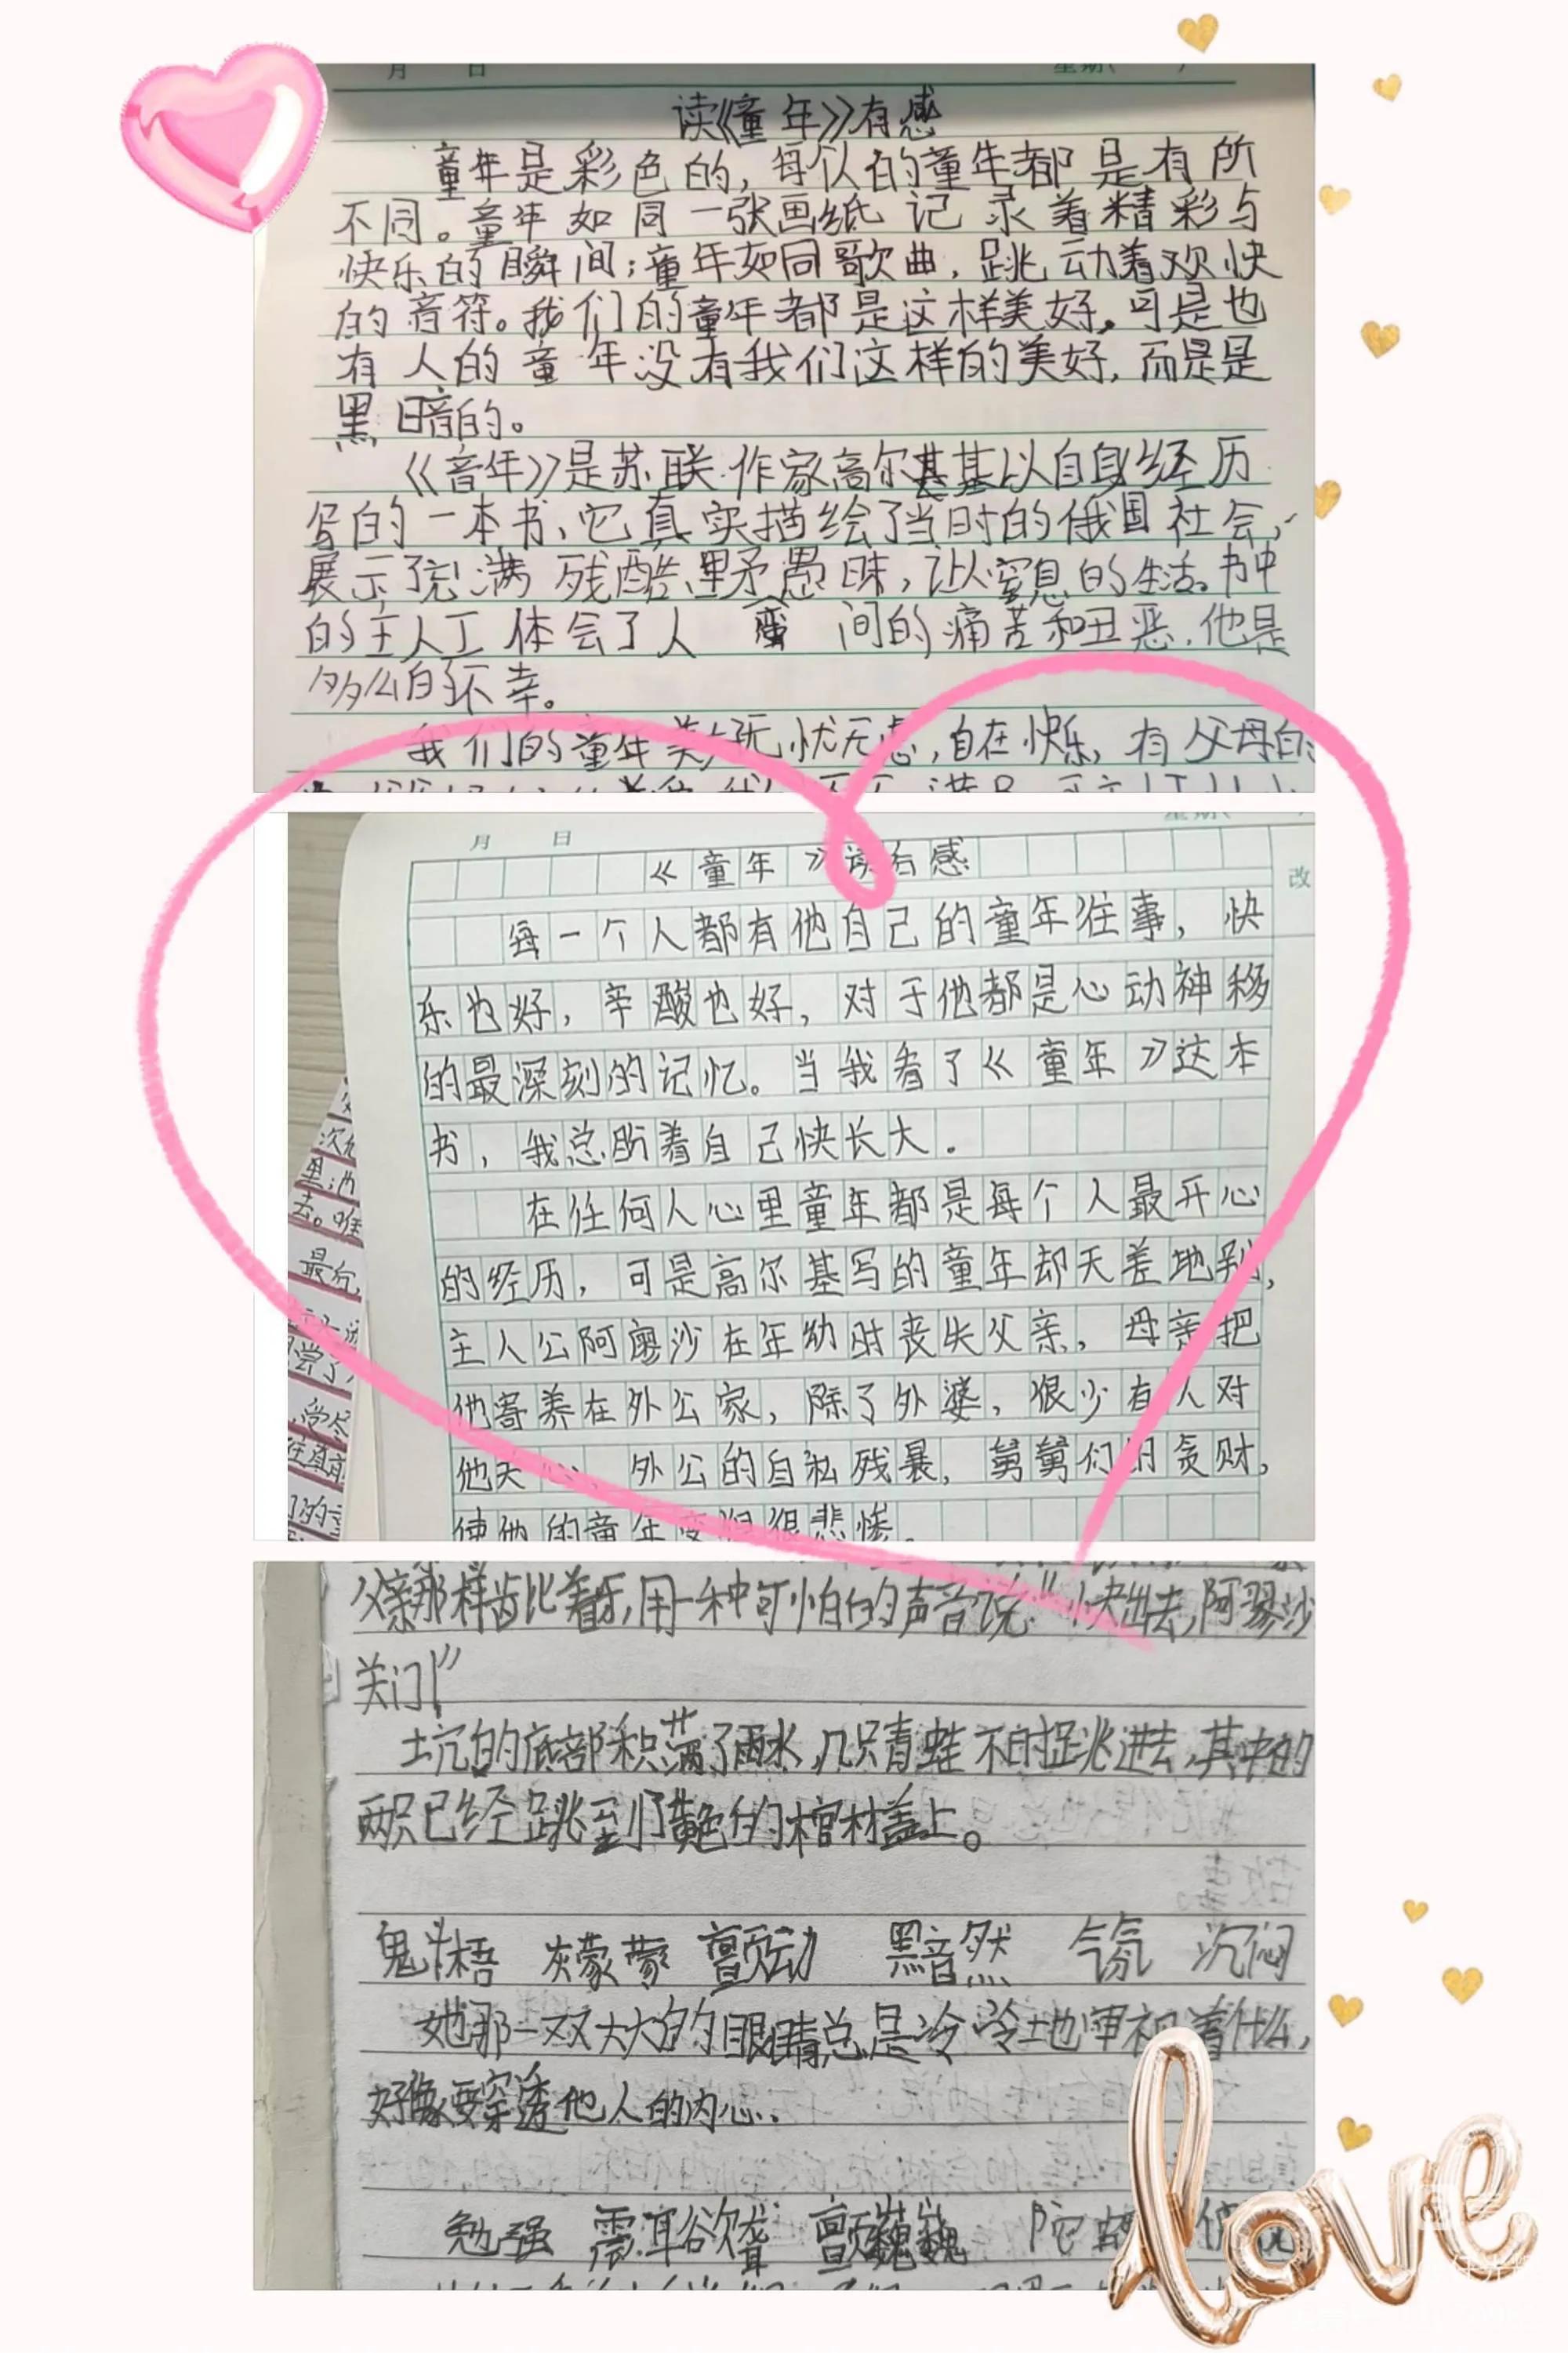 月 日 星期( )
读《童年》有感
童年是彩色的,每个人的童年都是有所
不同。童年如同一张画纸记录着精彩与
快乐的瞬间;童年如同歌曲,跳动着欢快
的音符。我们的童年都是这样美好,可是也
有人的童年没有我们这样的美好,而是是
黑暗的。
《音年》是苏联作家高尔基基以自身经历
写的一本书、它真实描绘了当时的俄国社会,
展示了充满残酷、野愚昧,让人窒息的生活。书中
的主人工体会了人蛮间的痛苦和丑恶.他是
多么的不幸。
我们的童年美好无忧无虑,自在快乐,有父母的
月 日
《童年》读后感
改
每一个人都有他自己的童年往事,快
乐也好,辛酸也好,对于他都是心动神移
的最深刻的记忆。当我看了《童年》这本
书,我总盼着自己快长大.
在任何人心里童年都是每个人最开心
的经历,可是高尔基写的童年却天差地别,
主人公阿廖沙在年幼时丧失父亲,母亲把
他寄养在外公家,除了外婆,很少有人对
他关心,外公的自私残暴,舅舅们的贪财,
使他的童年变得很悲惨。
父亲那样龇着牙,用一种可怕的声音说:"快出去,阿廖沙
关门!"
土坑的底部积满了雨水,几只青蛙不时跳进去,其中的
两只已经跳到了黄色的棺材盖上。
魁梧 灰蒙蒙 颤动 黯然 气氛 沉闷
她那一双大大的眼睛总是冷冷地审视着什么,
好像要穿透他人的内心.
勉强 震耳欲聋 颤巍巍
love